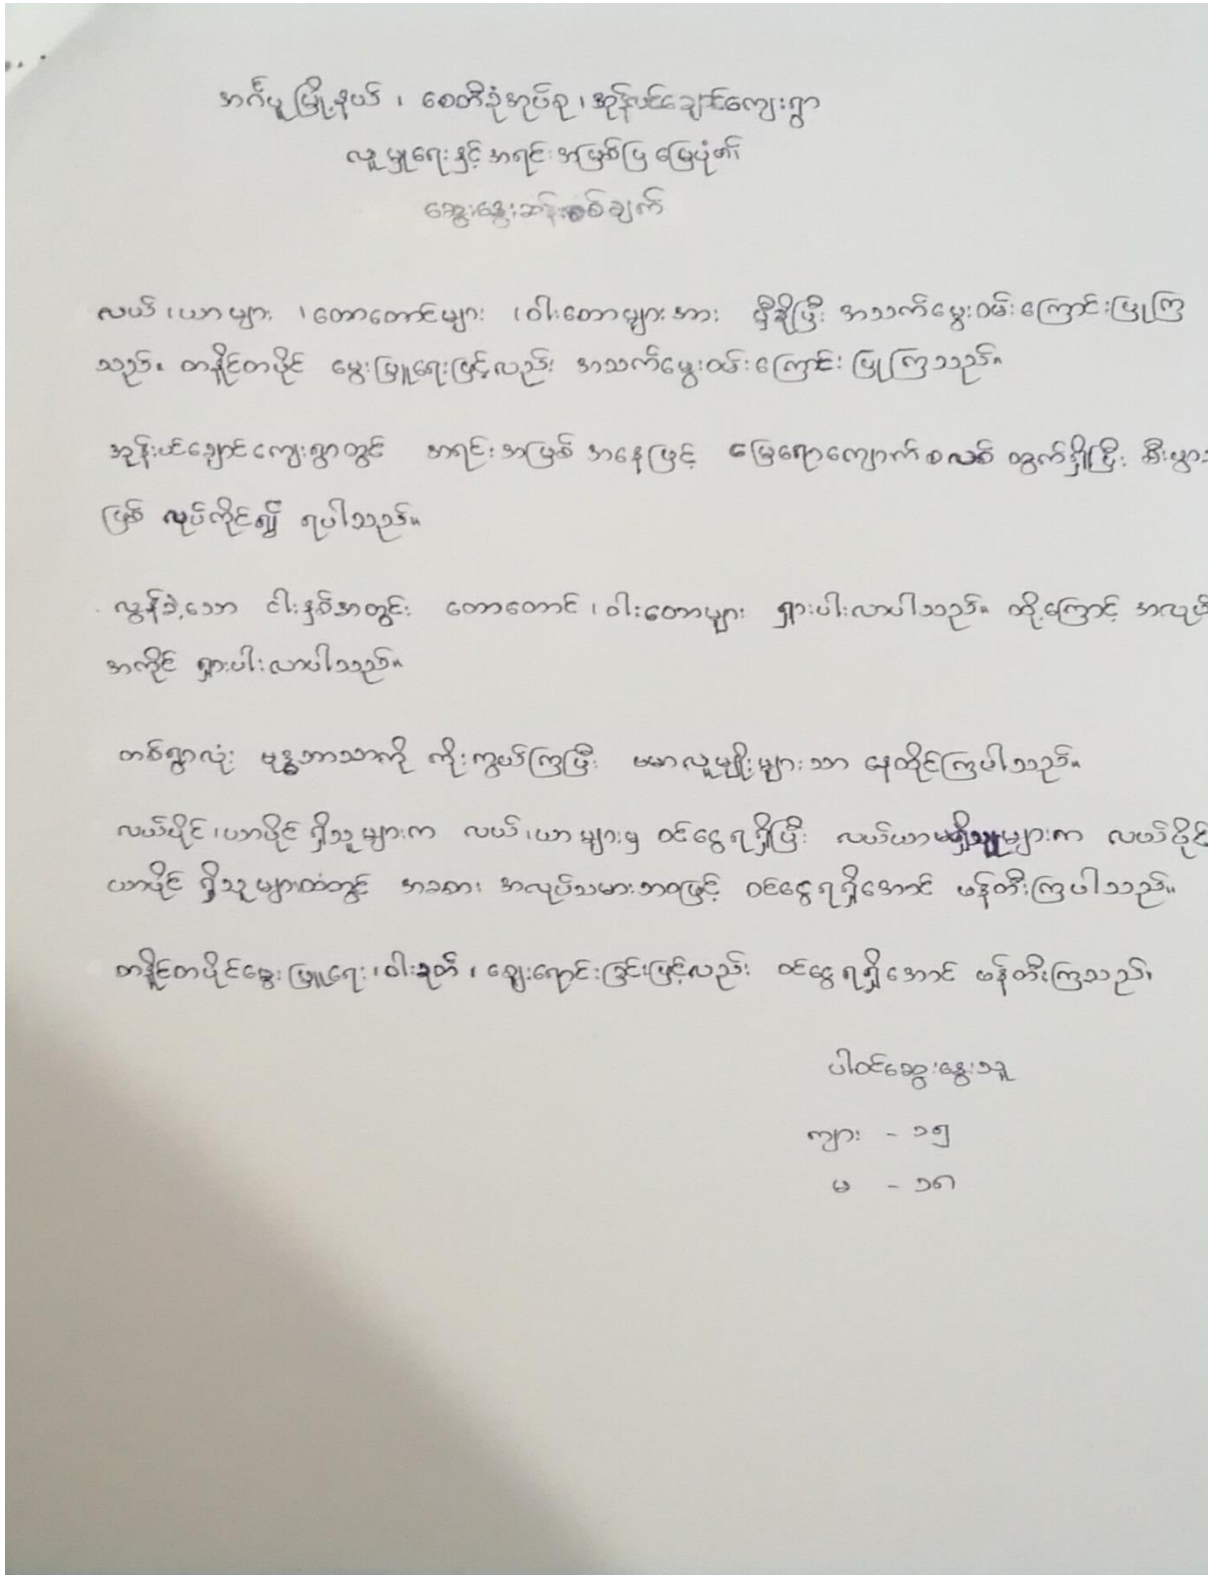 အင်္ဂပူမြို့နယ်၊ စေတီခုံအုပ်စု၊ အုန်းပင်ချောင်ကျေးရွာ
လူမှုရေးနှင့်အရင်းအမြစ်ပြမြေပုံ၏
ဆွေးနွေးဆန်းစစ်ချက်
လယ်၊ယာများ၊ တောတောင်များ၊ ဝါးတောများအား မှီခိုပြီး အသက်မွေးဝမ်းကြောင်းပြုကြ
သည်။ တနိုင်တပိုင် မွေးမြူရေးဖြင့်လည်း အသက်မွေးဝမ်းကြောင်းပြုကြသည်။
အုန်းပင်ချောင်ကျေးရွာတွင် အရင်းအမြစ် အနေဖြင့် မြေရောကျောက်စလစ် ထွက်ရှိပြီး စီးပွား
ဖြစ် လုပ်ကိုင်၍ ရပါသည်။
လွန်ခဲ့သော ငါးနှစ်အတွင်း တောတောင်၊ ဝါးတောများ ရှားပါးလာပါသည်။ ထို့ကြောင့် အလုပ်
အကိုင် ရှားပါးလာပါသည်။
တစ်ရွာလုံး ဗုဒ္ဓဘာသာကို ကိုးကွယ်ကြပြီး ဗမာလူမျိုးများသာ နေထိုင်ကြပါသည်။
လယ်ပိုင်၊ယာပိုင် ရှိသူများက လယ်၊ယာများမှ ဝင်ငွေရရှိပြီး လယ်ယာမရှိသူများက လယ်ပိုင်
ယာပိုင် ရှိသူများထံတွင် အခစား အလုပ်သမားဘဝဖြင့် ဝင်ငွေရရှိအောင် ဖန်တီးကြပါသည်။
တနိုင်တပိုင်မွေးမြူရေး၊ ဝါးခုတ်၊ ဈေးရောင်းခြင်းဖြင့်လည်း ဝင်ငွေရရှိအောင် ဖန်တီးကြသည်၊
ပါဝင်ဆွေးနွေးသူ
ကျား - ၁၅
မ - ၁၈